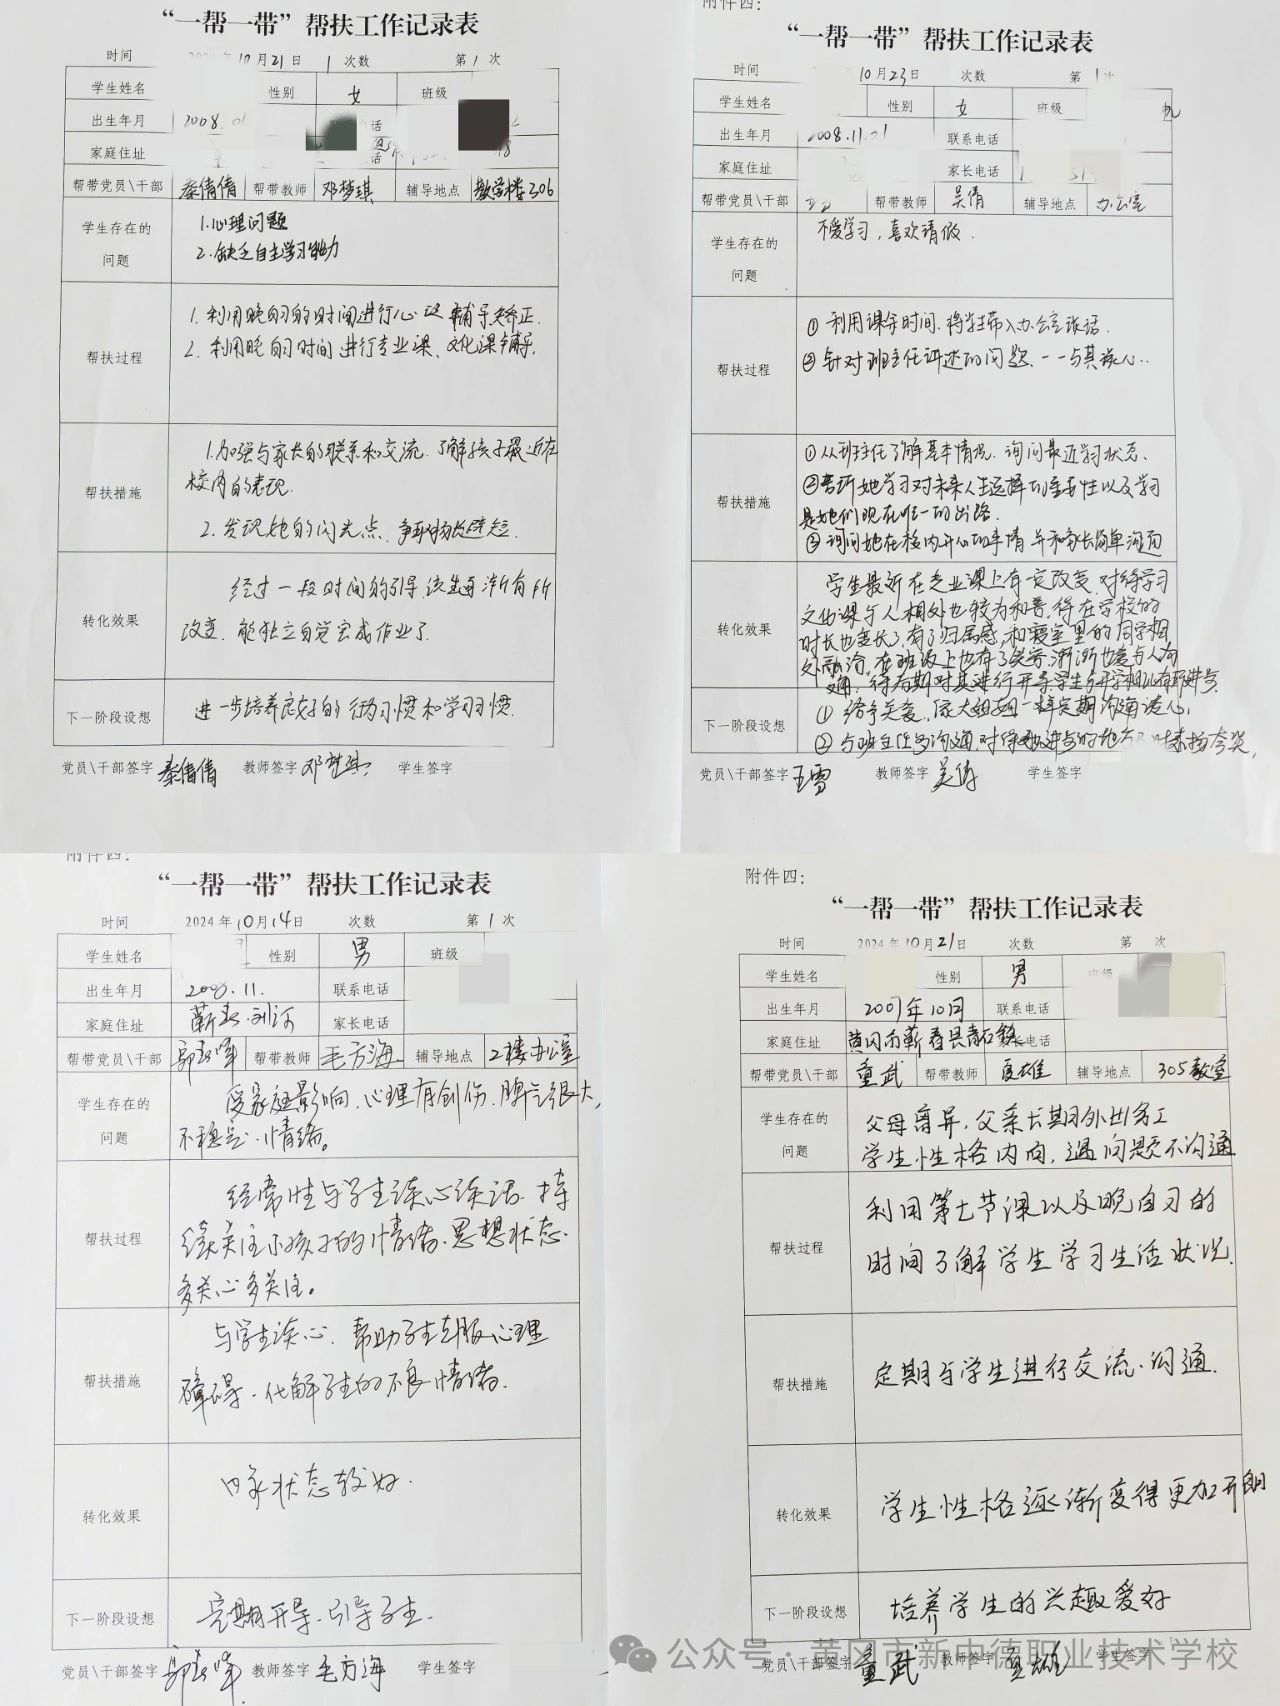 “一帮一带”帮扶工作记录表
时间 10月21日 1 次数 第1次
学生姓名 性别 女 班级
出生年月 2008.01
家庭住址
帮带党员\干部 秦倩倩 帮带教师 邓梦琪 辅导地点 教学楼306
学生存在的问题
1.心理问题
2.缺乏自主学习能力
帮扶过程
1.利用晚自习的时间进行心理辅导矫正.
2.利用晚自习时间进行专业课、文化课辅导.
帮扶措施
1.加强与家长的联系和交流.了解孩子最近在
校内的表现.
2.发现她的闪光点、争取扬长避短.
转化效果
经过一段时间的引导,该生逐渐有所
改变.能独立自觉完成作业了.
下一阶段设想
进一步培养良好的行为习惯和学习习惯.
党员\干部签字 秦倩倩 教师签字 邓梦琪 学生签字
附件四:
“一帮一带”帮扶工作记录表
时间 10月23日 次数 第1次
学生姓名 性别 女 班级
出生年月 2008.11.21 联系电话
家庭住址 家长电话
帮带党员\干部 帮带教师 吴倩 辅导地点 办公室
学生存在的问题
不爱学习,喜欢请假.
帮扶过程
①利用课余时间,将学生带入办公室谈话.
②针对班主任讲述的问题,一一与其谈心..
帮扶措施
①从班主任了解基本情况,询问最近学习状态.
②告诉她学习对未来人生选择的重要性以及学习
是她们现在唯一的出路.
③询问她在校内开心的事情并和家长简单沟通
转化效果
学生最近在专业课上有一定改变,对待学习
文化课与人相处也较为和善,待在学校的
时长也变长了,有了归属感,和寝室里的同学相
处融洽,在班级上也有了笑容,渐渐也爱与人沟
通,待后期对其进行开导,学生与开学相比有所进步.
下一阶段设想
①给予关爱,像大姐姐一样定期沟通谈心,
②与班主任多沟通,对待她进步的地方及时表扬夸奖,
党员\干部签字 王雪 教师签字 吴倩 学生签字
附件四:
“一帮一带”帮扶工作记录表
时间 2024年10月14日 次数 第1次
学生姓名 性别 男 班级
出生年月 2008.11. 联系电话
家庭住址 蕲春.刘河 家长电话
帮带党员\干部 帮带教师 毛方海 辅导地点 2楼办公室
学生存在的问题
受家庭影响,心理有创伤,脾气很大,
不稳定.情绪。
帮扶过程
经常性与学生谈心谈话.持
续关注小孩子的情绪.思想状态.
多关心多关注。
帮扶措施
与学生谈心.帮助学生克服心理
障碍.化解学生的不良情绪.
转化效果
日常状态较好.
下一阶段设想
定期开导.引导学生.
党员\干部签字 教师签字 毛方海 学生签字
附件四:
“一帮一带”帮扶工作记录表
时间 2024年10月21日 次数 第 次
学生姓名 性别 男 班级
出生年月 2007年10月 联系电话
家庭住址 黄冈市蕲春县青石镇 家长电话
帮带党员\干部 童武 帮带教师 夏雄 辅导地点 305教室
学生存在的问题
父母离异,父亲长期外出务工
学生性格内向,遇问题不沟通
帮扶过程
利用第七节课以及晚自习的
时间了解学生学习生活状况.
帮扶措施
定期与学生进行交流.沟通.
转化效果
学生性格逐渐变得更加开朗
下一阶段设想
培养学生的兴趣爱好
党员\干部签字 童武 教师签字 夏雄 学生签字
公众号·黄冈市新中德职业技术学校